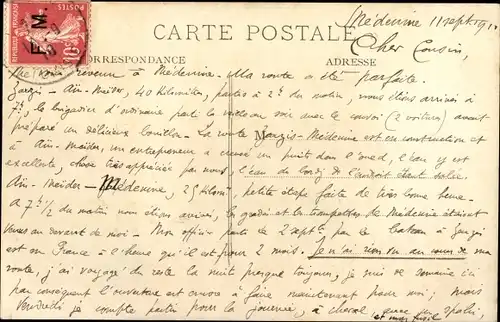 Médenine 11 sept. 191
CARTE POSTALE
Cher Cousin,
F. M.
CORRESPONDANCE
ADRESSE
revenu à Médenine. Ma route a été parfaite.
Zarzis - Aïn-Maïder, 40 kilomètres, partis à 2h du matin, nous étions arrivés à
7h, le brigadier d'ordinaire parti la veille au soir avec le convoi (2 voitures) avait
préparé un délicieux bouillon. La route Zarzis-Médenine est en construction et
à Aïn-Maïder, un entrepreneur a creusé un puits dans l'oued, l'eau y est
excellente, chose très appréciée par nous, l'eau de l'endroit étant salée.
Aïn-Maïder - Médenine, 25 kilom., petite étape faite de très bonne heure.
à 7h 1/2 du matin nous étions arrivés, le et les trompettes de Médenine étaient
venus au devant de moi. Mon officier parti de 2 sept. par le bateau à Zarzis
est en France à l'heure qu'il est pour 2 mois. Je n'ai rien vu au cours de ma
route, j'ai voyagé du reste la nuit presque toujours, je suis de semaine ici
par conséquent l'ouverture est encore à faire maintenant pour moi ; mais
Vendredi je compte partir pour la journée, à cheval avec un spahi,
et mon fusil